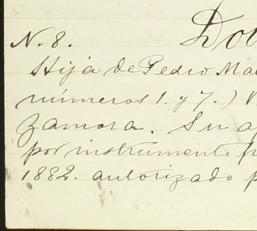 N. 8.
Hija de Pedro
números 1. y 7.)
Zamora. Su
por instrumento
1882. autorizado